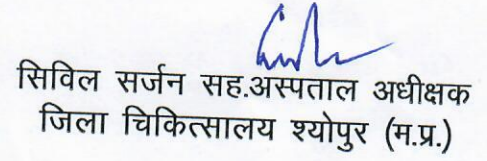 सिविल सर्जन सह.अस्पताल अधीक्षक
जिला चिकित्सालय श्योपुर (म.प्र.)